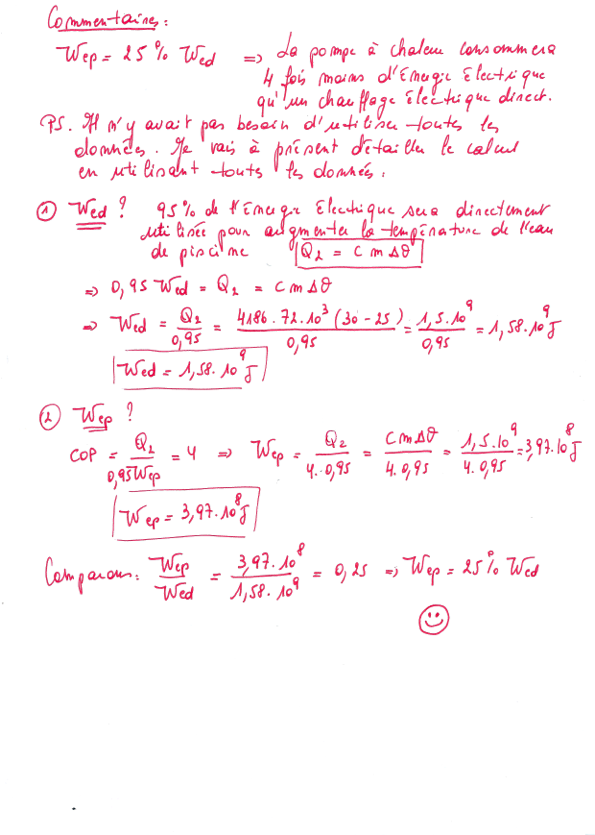 Commentaires:
Wep = 25% Wed => La pompe à chaleur consommera
4 fois moins d'énergie électrique
qu'un chauffage électrique direct.
PS. Il n'y avait pas besoin d'utiliser toutes les
données. Je vais à présent détailler le calcul
en utilisant toutes les données.
① Wed ? 95% de l'énergie électrique sera directement
utilisée pour augmenter la température de l'eau
de piscine Q₂ = C m Δθ
=> 0,95 Wed = Q₂ = C m Δθ
=> Wed = Q₂/0,95 = 4186.72.10³ (30-25)/0,95 = 1,5.10⁹/0,95 = 1,58.10⁹ J
Wed = 1,58.10⁹ J
② Wep ?
COP = Q₂/0,95Wep = 4 => Wep = Q₂/4.0,95 = CmΔθ/4.0,95 = 1,5.10⁹/4.0,95 = 3,97.10⁸ J
Wep = 3,97.10⁸ J
Comparons: Wep/Wed = 3,97.10⁸/1,58.10⁹ = 0,25 => Wep = 25% Wed